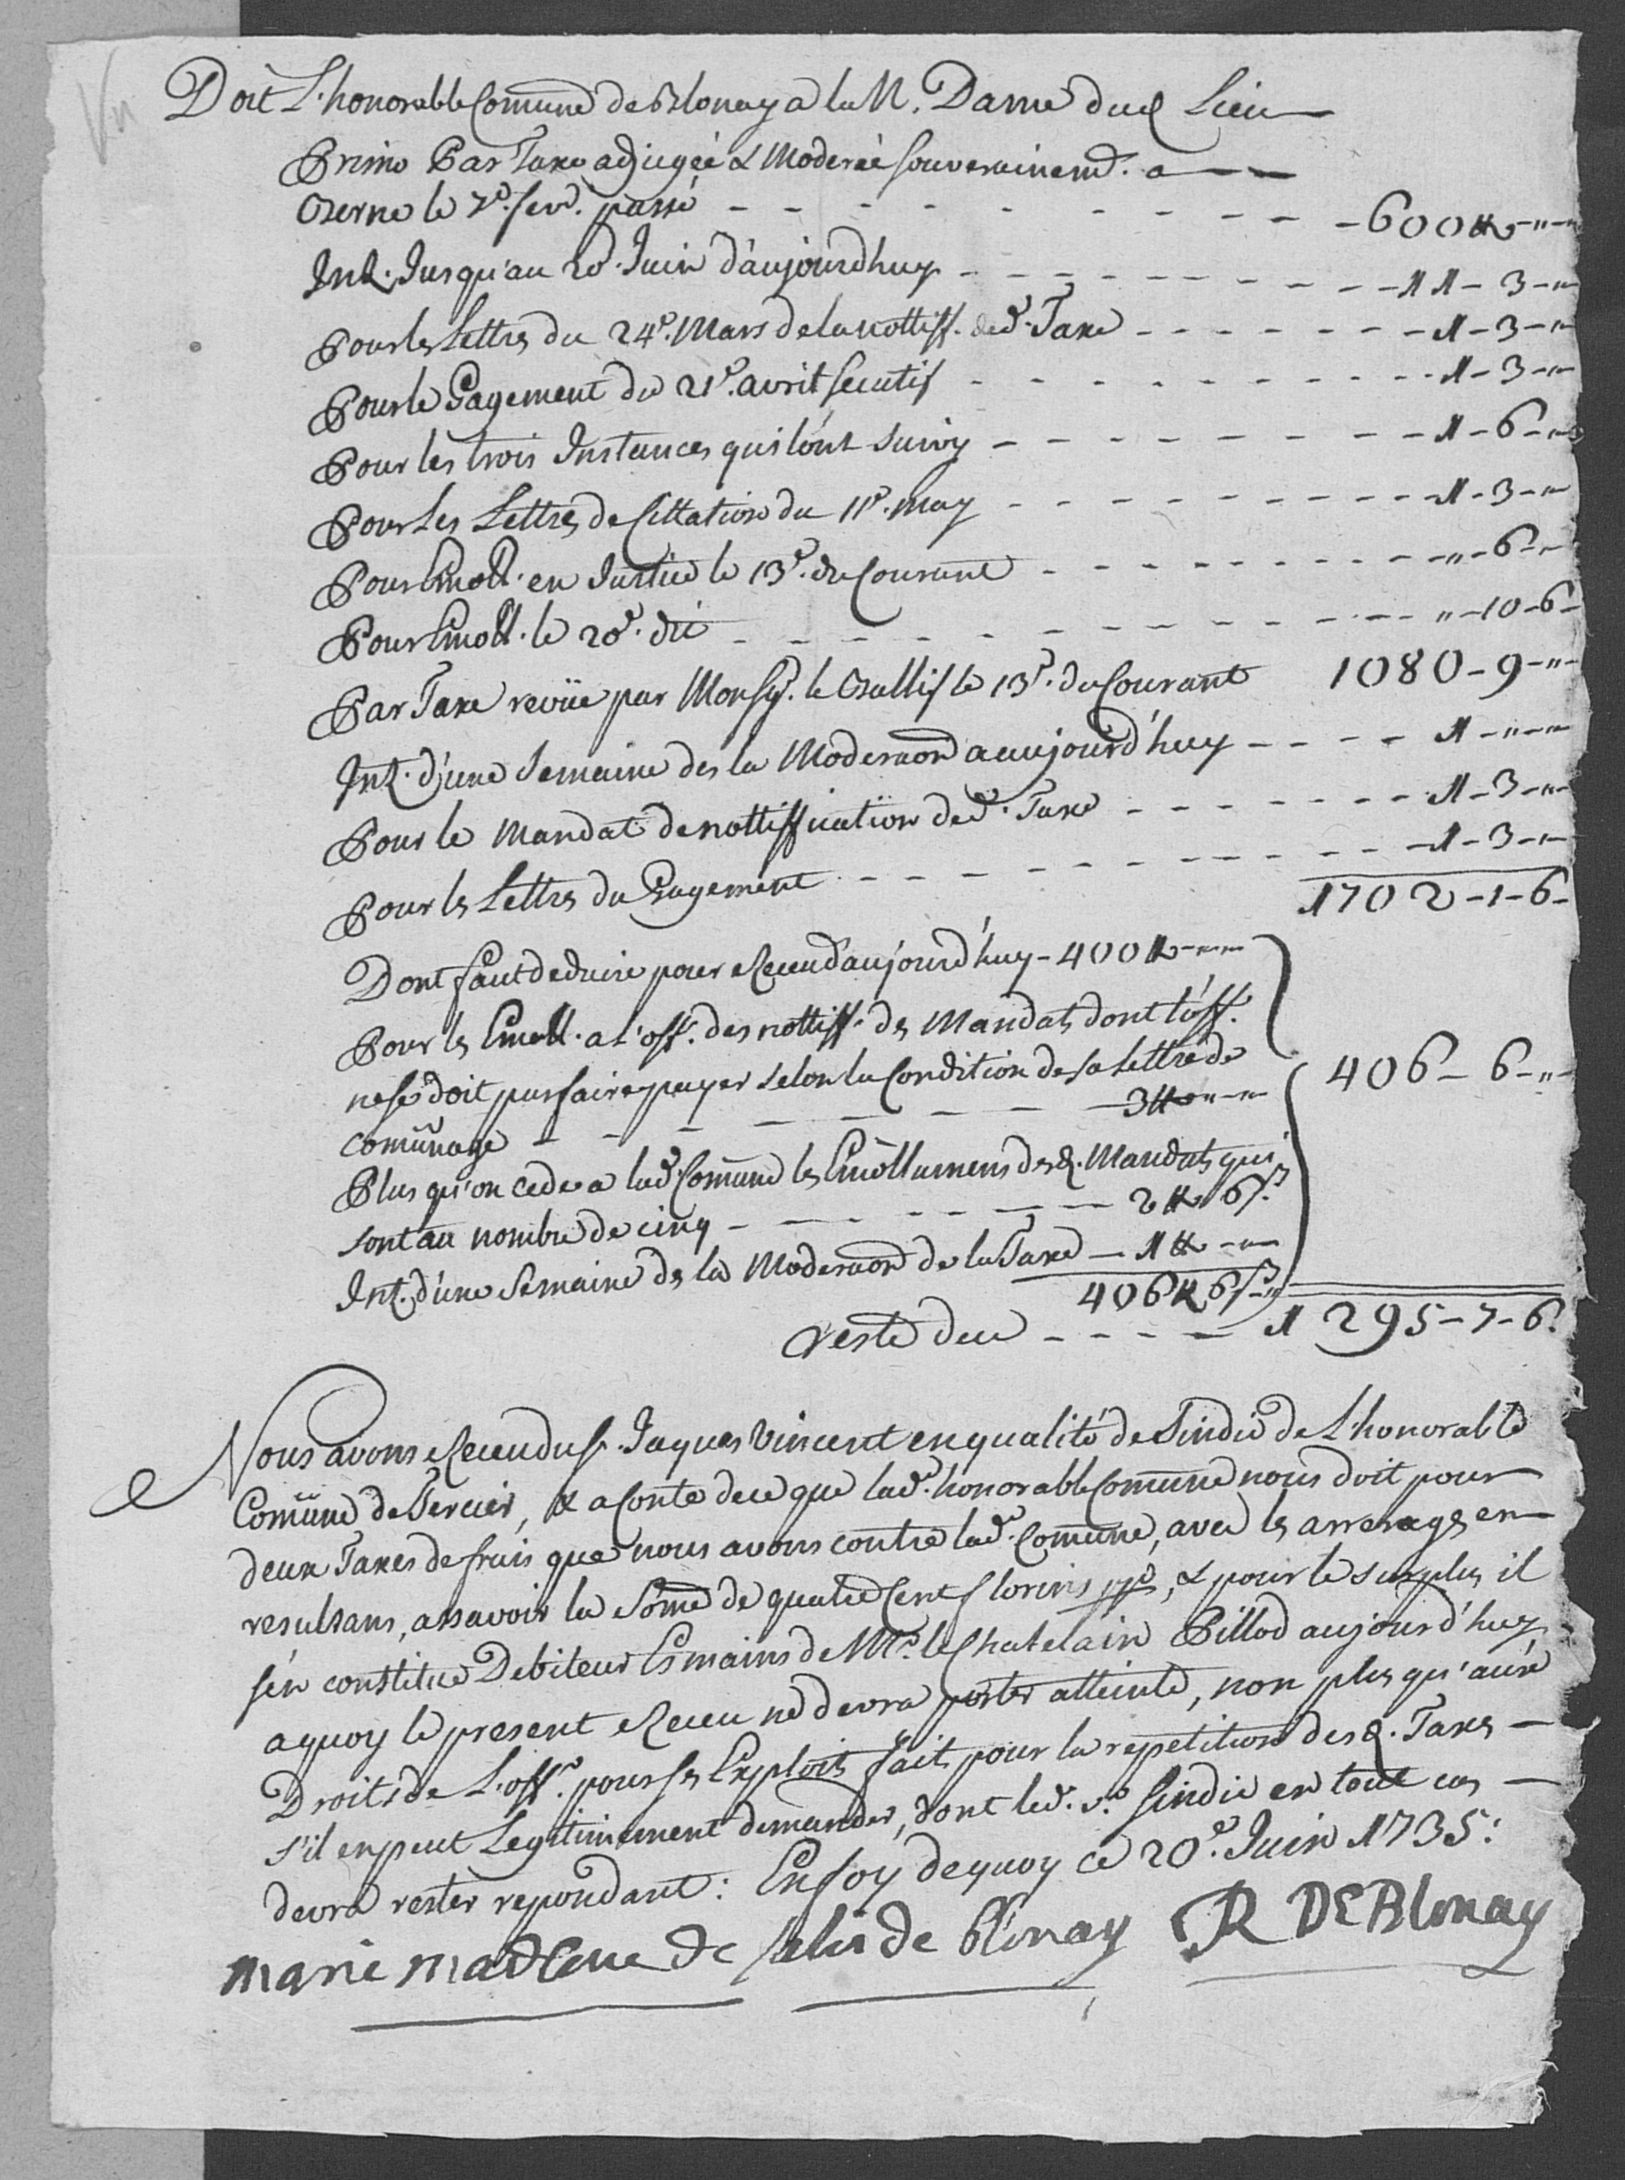 Doit L'honorable Comune de Blonay a la N. Dame dud. Lieu
Primo Par Taxe adjugée & Moderée souverainemt. a
Berne le 7e. fevr. passé - - - 600 ff - " - "
Int. Jusqu'au 20e. Juin d'aujourd'huy - - - 11 - 3 - "
Pour les Lettres du 24e. Mars de la nottiff. de d. Taxe - - - 1 - 3 - "
Pour le Gagement du 21e. avril secutif - - - 1 - 3 - "
Pour les trois Instances qui l'ont suivy - - - 1 - 6 - "
Pour Les Lettres de Cittation du 11e. may - - - 1 - 3 - "
Pour Emoll. en Justice le 13e. du Courant - - - " - 6 - "
Pour Emoll. le 20e. dit - - - " - 10 - 6 -
Par Taxe revüe par Monsgr. le Ballif le 13e. du Courant 1080 - 9 - "
Int. d'une Semaine des la Moderaon a aujourd'huy - - - 1 - " - "
Pour le Mandat de nottiffication de d. Taxe - - - 1 - 3 - "
Pour les Lettres du Gagement - - - 1 - 3 - "
1702 - 1 - 6 -
Dont faut deduire pour Receu d'aujourd'huy - 400 ff - " - "
Pour les Emoll. a l'off. des nottiff. des Mandats dont l'off.
ne se doit pas faire payer selon la Condition de sa lettre de
comunage - - - 3 ff - " - "
406 - 6 - "
Plus qu'on cede a lad. Comune les Emollumens desd. Mandats qui
sont au nombre de cinq - - - 2 ff 6 s.
Int. d'une Semaine des la Moderaon de la Taxe - 1 ff - " - "
406 ff 6 s - "
reste deu - - - 1295 - 7 - 6.
Nous avons Receu du Sr. Jaques Vincent en qualité de Sindic de L'honorable
Comune de Blonay, & a Conte de ce que lad. honorable Comune nous doit pour
deux Taxes de frais que nous avons contre lad. Comune, avec les arrerages en
resultans, assavoir la Some de quatre Cent florins, & pour le surplus il
s'en constitue Debiteur Es mains de Mr. le Chatelain Pillod aujourd'huy
a quoy le present Receu ne devra porter atteinte, non plus qu'aux
Droits de L'offr. pour ses Exploits faits pour la repetition desd. Taxes
s'il en peut Legitimement demander, dont led. Sr. Sindic en tout cas
devra rester repondant : En foy de quoy ce 20e. Juin 1735 :
Marie Madlene de Salis de Blonay R DE Blonay